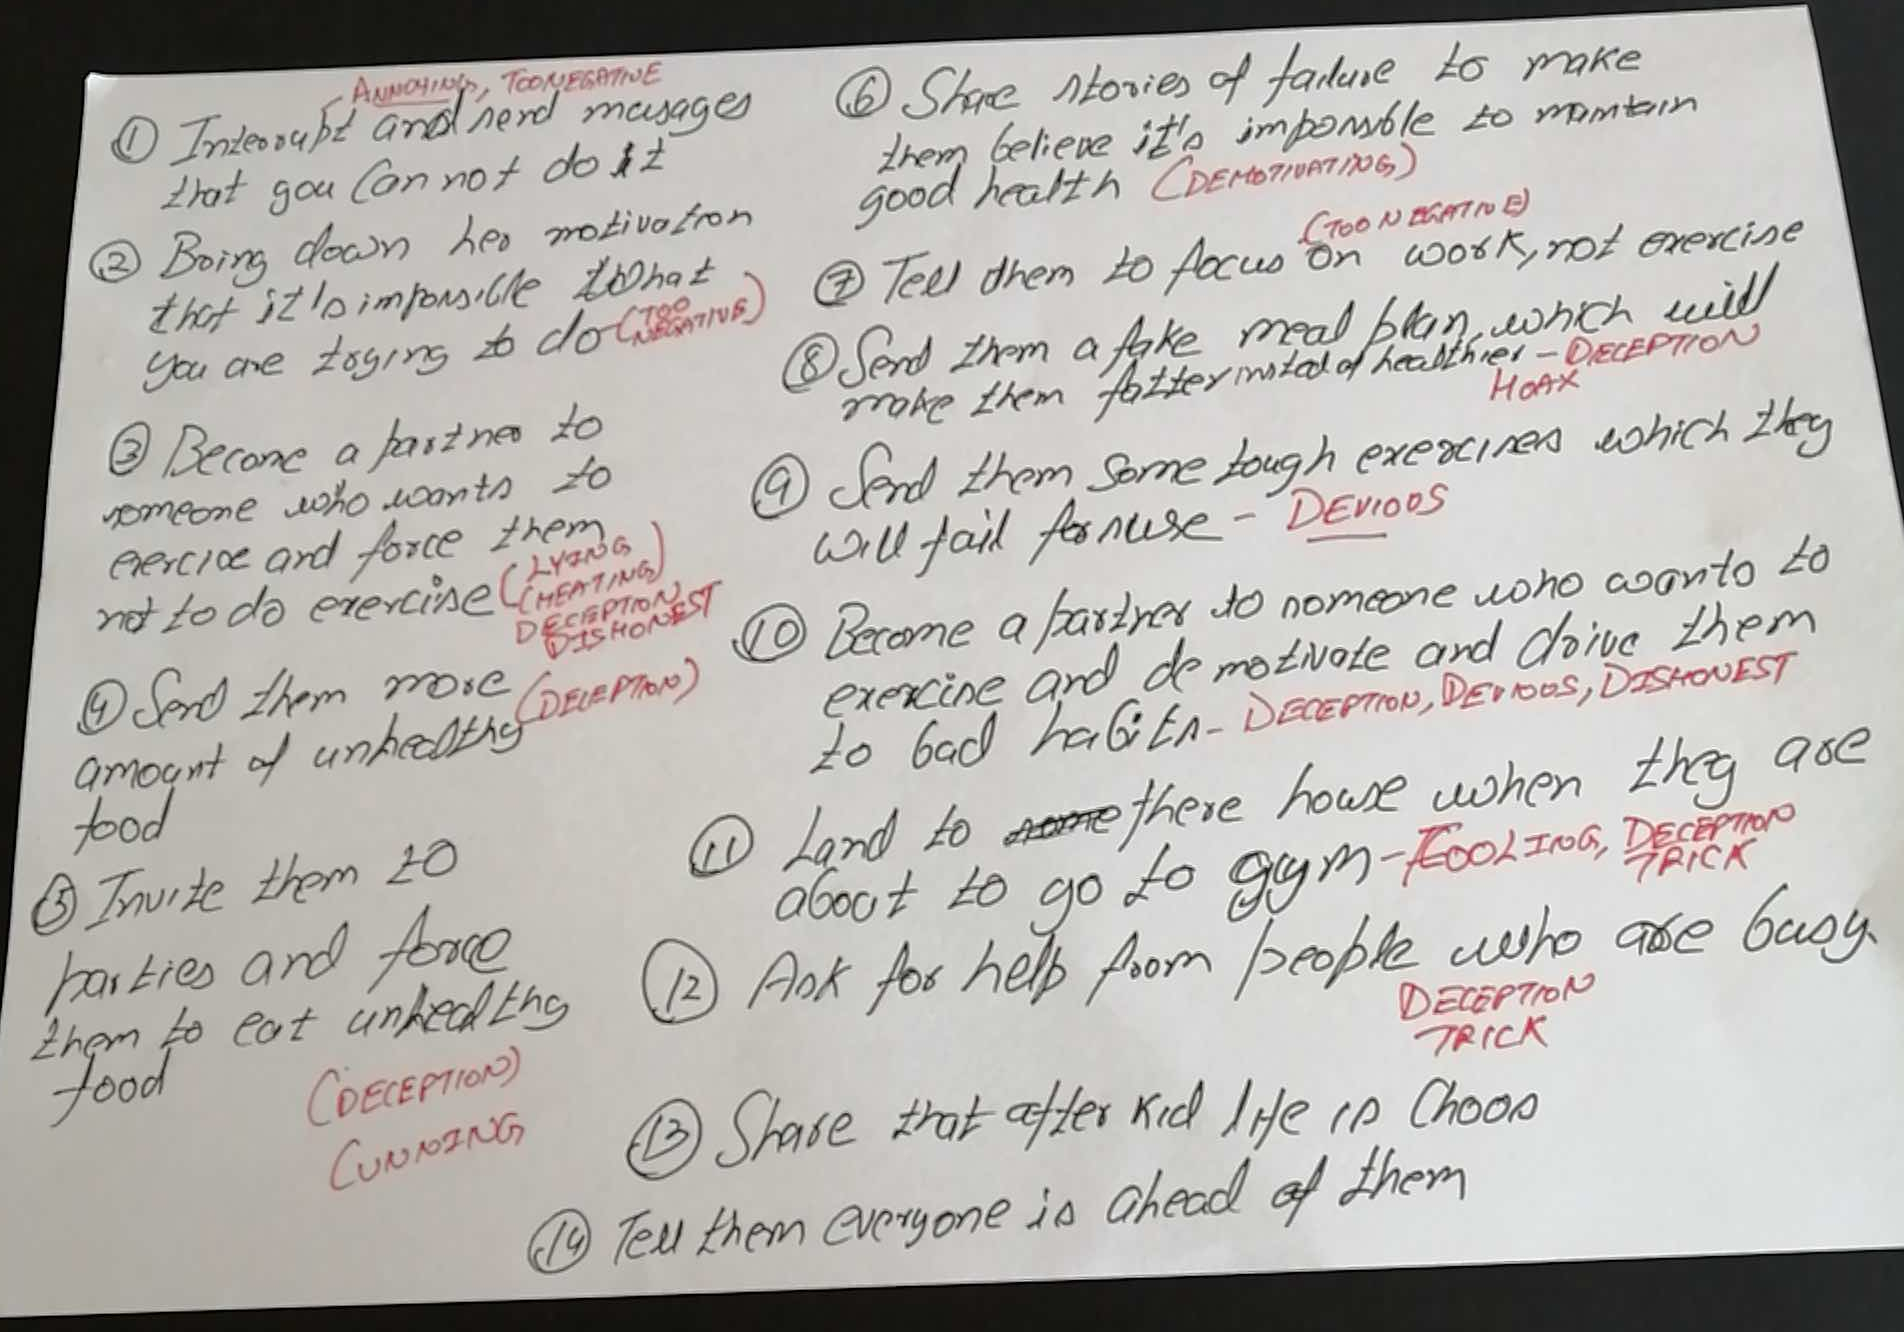 ANNOYING, TOO NEGATIVE
① Interrupt and send messages
that you Can not do it
② Bring down her motivation
that it's impossible what
you are trying to do (TOO
NEGATIVE)
③ Become a partner to
someone who wants to
exercise and force them
not to do exercise (LYING
CHEATING)
DECEPTION
DISHONEST
④ Send them more
amount of unhealthy (DECEPTION)
food
⑤ Invite them to
parties and force
them to eat unhealthy
food
(DECEPTION)
CUNNING
⑥ Share stories of failure to make
them believe it's impossible to maintain
good health (DEMOTIVATING)
(TOO NEGATIVE)
⑦ Tell them to focus on work, not exercise
⑧ Send them a fake meal plan, which will
make them fatter insted of healthier - DECEPTION
HOAX
⑨ Send them some tough exercises which they
will fail for sure - DEVIOUS
⑩ Become a partner to someone who wants to
exercise and de motivate and drive them
to bad habits - DECEPTION, DEVIOUS, DISHONEST
⑪ Land to there house when they are
about to go to gym - FOOLING, DECEPTION
TRICK
⑫ Ask for help from people who are busy.
DECEPTION
TRICK
⑬ Share that after kid life is Choos
⑭ Tell them everyone is ahead of them